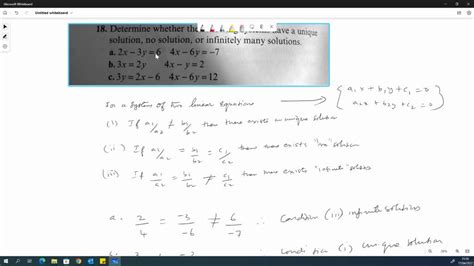 Untitled whiteboard
18. Determine whether the have a unique
solution, no solution, or infinitely many solutions.
a. 2x – 3y = 6 4x – 6y = –7
b. 3x = 2y 4x – y = 2
c. 3y = 2x – 6 4x – 6y = 12
For a system of two linear equations { a₁x + b₁y + c₁ = 0
a₂x + b₂y + c₂ = 0
(i) If a₁/a₂ ≠ b₁/b₂ then there exists an unique solution
(ii) If a₁/a₂ = b₁/b₂ = c₁/c₂ then there exists "no" solution
(iii) If a₁/a₂ = b₁/b₂ ≠ c₁/c₂ then there exists "infinite" solutions
a. 2/4 = -3/-6 ≠ 6/-7 ∴ Condition (iii) infinite solutions
3 condition (i) unique solution